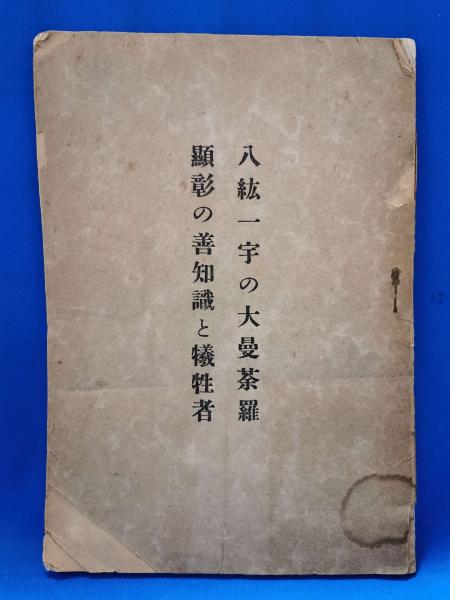 八紘一宇の大曼荼羅
顯彰の善知識と犧牲者